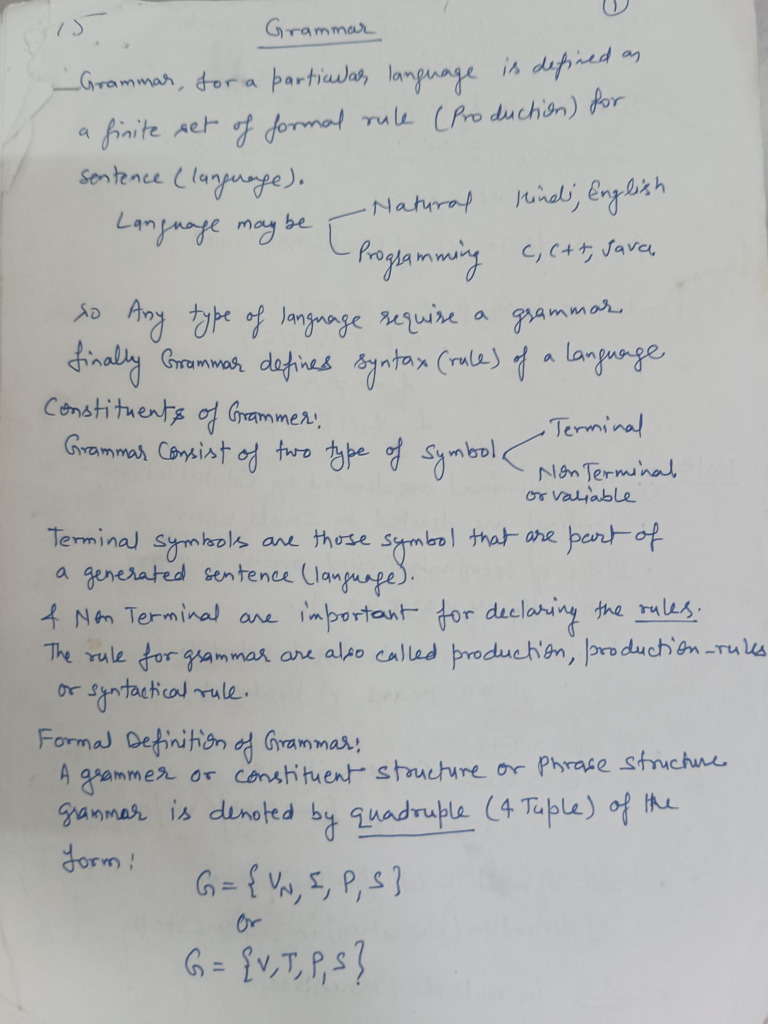 15
①
Grammar
Grammar, for a particular language is defined as
a finite set of formal rule (Production) for
sentence (language).
Language may be
Natural Hindi, English
Programming C, C++, Java
so Any type of language require a grammar
finally Grammar defines syntax (rule) of a language
Constituents of Grammer:
Grammar Consist of two type of symbol
Terminal
Non Terminal
or variable
Terminal symbols are those symbol that are part of
a generated sentence (language).
& Non Terminal are important for declaring the rules.
The rule for grammar are also called production, production-rules
or syntactical rule.
Formal Definition of Grammar:
A grammer or constituent structure or Phrase structure
grammar is denoted by quadruple (4 Tuple) of the
form:
G = { V_N, Σ, P, S }
or
G = {V, T, P, S}